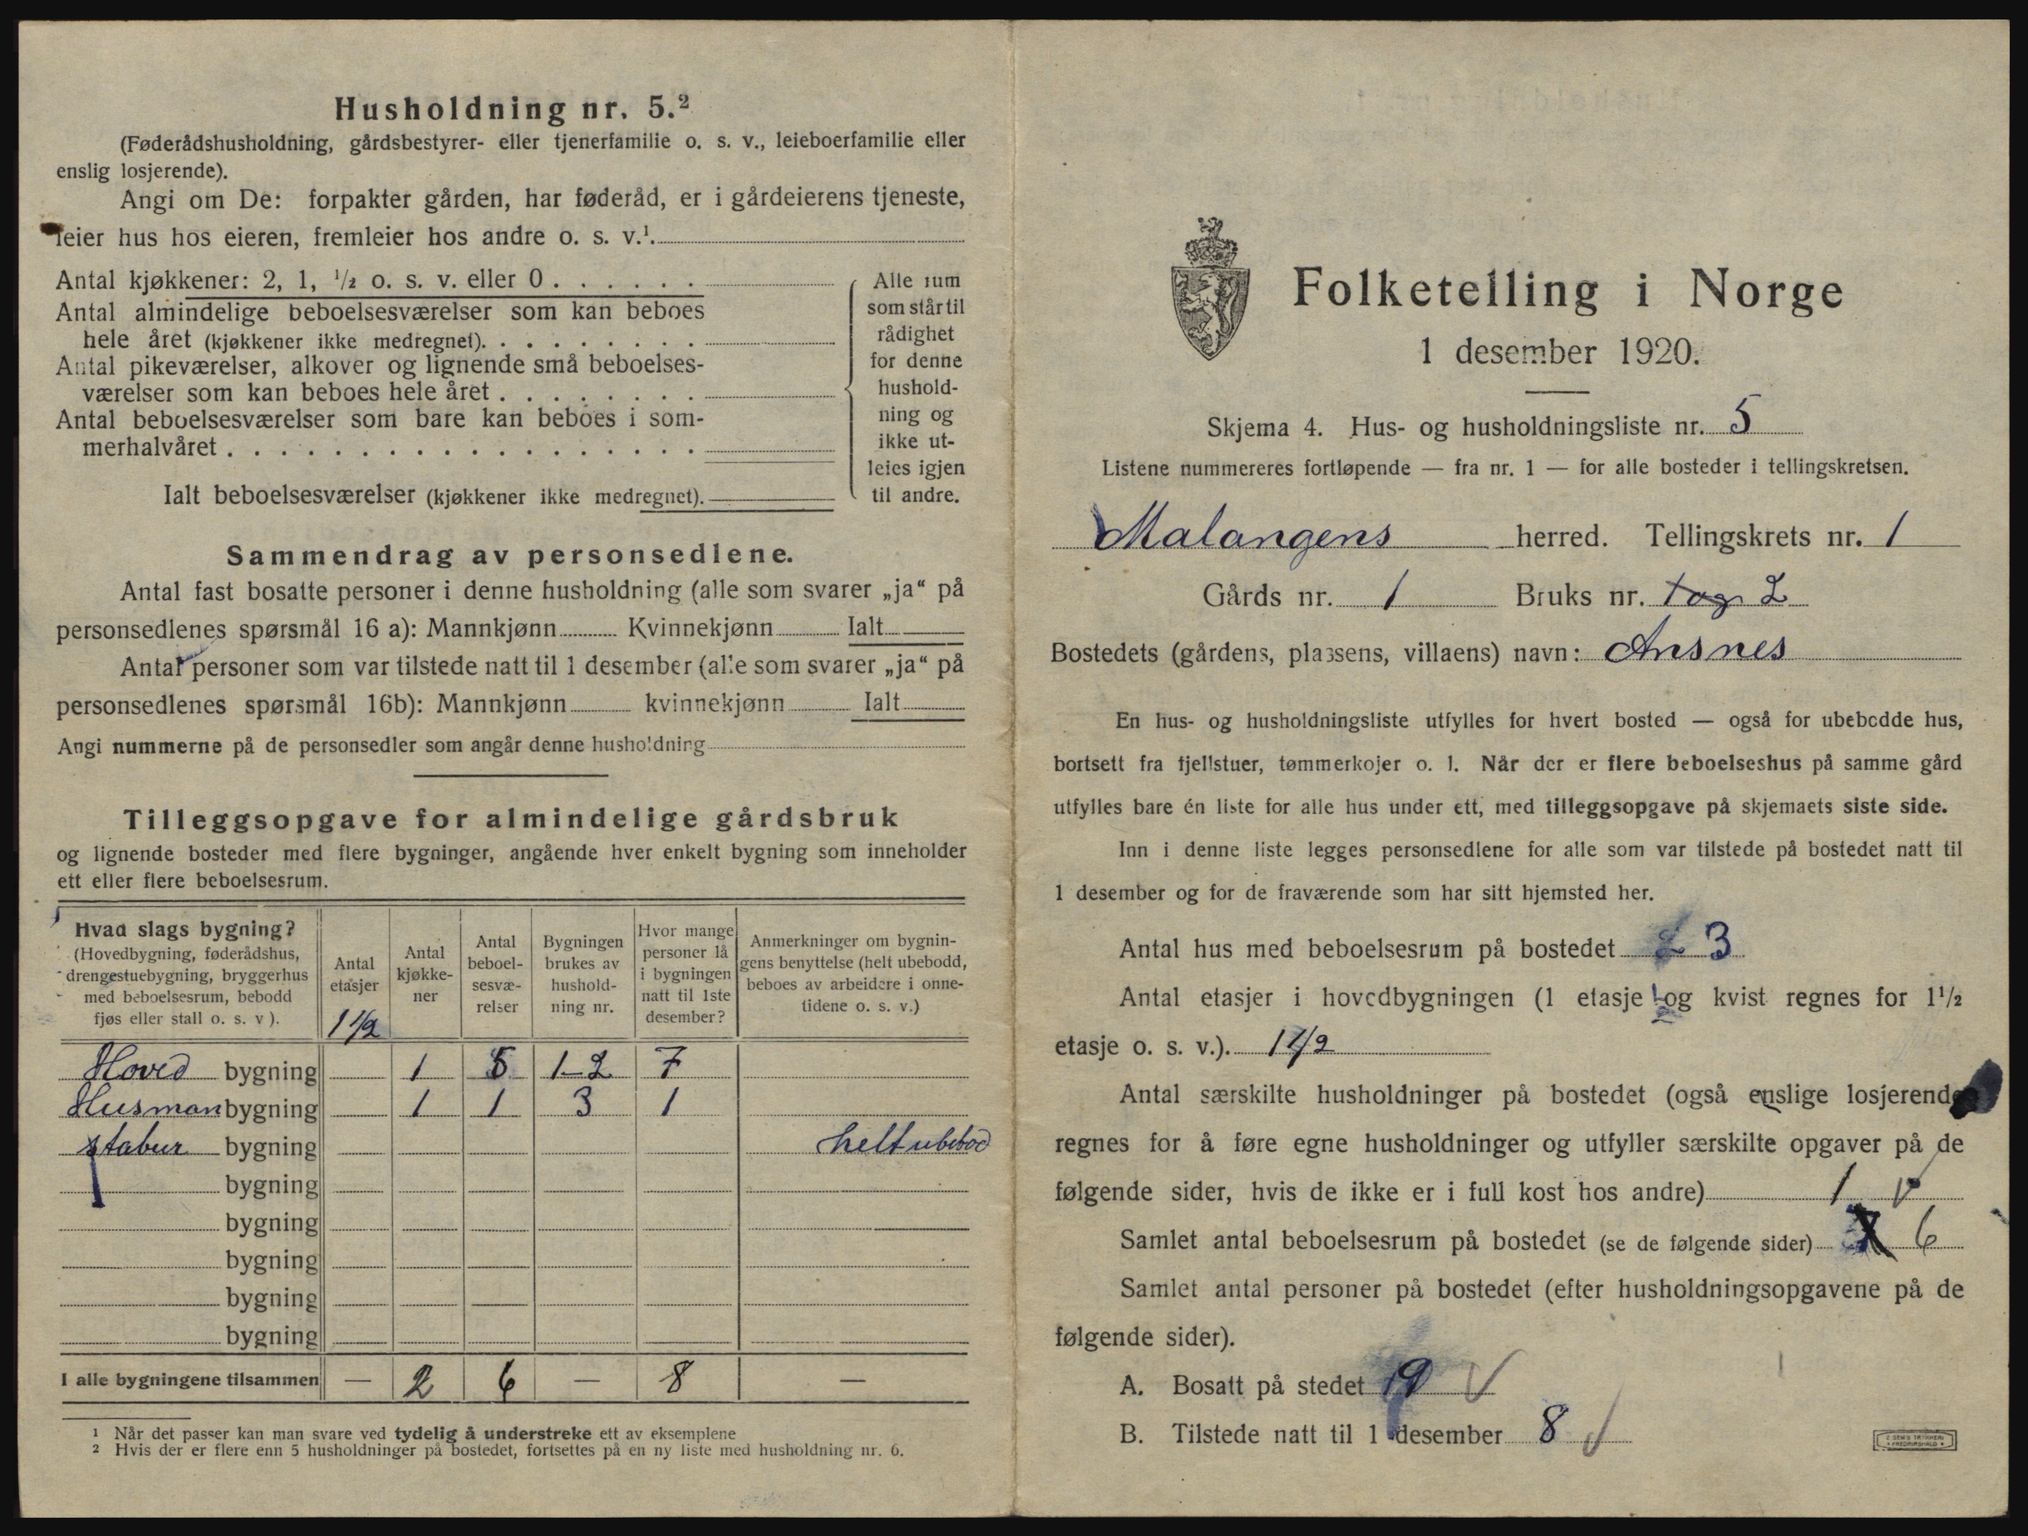 Husholdning nr. 5.²
(Føderådshusholdning, gårdsbestyrer- eller tjenerfamilie o. s. v., leieboerfamilie eller
enslig losjerende).
Angi om De: forpakter gården, har føderåd, er i gårdeierens tjeneste,
leier hus hos eieren, fremleier hos andre o. s. v.¹.
Antal kjøkkener: 2, 1, ½ o. s. v. eller 0
Antal almindelige beboelsesværelser som kan beboes
hele året (kjøkkener ikke medregnet).
Antal pikeværelser, alkover og lignende små beboelses-
værelser som kan beboes hele året
Antal beboelsesværelser som bare kan beboes i som-
merhalvåret
Ialt beboelsesværelser (kjøkkener ikke medregnet).
Alle rum
som står til
rådighet
for denne
hushold-
ning og
ikke ut-
leies igjen
til andre.
Sammendrag av personsedlene.
Antal fast bosatte personer i denne husholdning (alle som svarer „ja“ på
personsedlenes spørsmål 16 a): Mannkjønn Kvinnekjønn Ialt
Antal personer som var tilstede natt til 1 desember (alle som svarer „ja“ på
personsedlenes spørsmål 16b): Mannkjønn kvinnekjønn Ialt
Angi nummerne på de personsedler som angår denne husholdning
Tilleggsopgave for almindelige gårdsbruk
og lignende bosteder med flere bygninger, angående hver enkelt bygning som inneholder
ett eller flere beboelsesrum.
Hvad slags bygning?
(Hovedbygning, føderådshus,
drengestuebygning, bryggerhus
med beboelsesrum, bebodd
fjøs eller stall o. s. v ).
Antal
etasjer
1 1/2
Antal
kjøkke-
ner
Antal
beboel-
sesvæ-
relser
Bygningen
brukes av
hushold-
ning nr.
Hvor mange
personer lå
i bygningen
natt til 1ste
desember?
Anmerkninger om bygnin-
gens benyttelse (helt ubebodd,
beboes av arbeidere i onne-
tidene o. s. v.)
Hoved bygning 1 5 1-2 7
Husman bygning 1 1 3 1
stabur bygning helt ubebod
bygning
bygning
bygning
bygning
bygning
I alle bygningene tilsammen — 2 6 — 8 —
¹ Når det passer kan man svare ved tydelig å understreke ett av eksemplene
² Hvis der er flere enn 5 husholdninger på bostedet, fortsettes på en ny liste med husholdning nr. 6.
Folketelling i Norge
1 desember 1920.
Skjema 4. Hus- og husholdningsliste nr. 5
Listene nummereres fortløpende — fra nr. 1 — for alle bosteder i tellingskretsen.
Malangens herred. Tellingskrets nr. 1
Gårds nr. 1 Bruks nr. 2
Bostedets (gårdens, plassens, villaens) navn: Ansnes
En hus- og husholdningsliste utfylles for hvert bosted — også for ubebodde hus,
bortsett fra fjellstuer, tømmerkojer o. l. Når der er flere beboelseshus på samme gård
utfylles bare én liste for alle hus under ett, med tilleggsopgave på skjemaets siste side.
Inn i denne liste legges personsedlene for alle som var tilstede på bostedet natt til
1 desember og for de fraværende som har sitt hjemsted her.
Antal hus med beboelsesrum på bostedet 2 3
Antal etasjer i hovedbygningen (1 etasje og kvist regnes for 1½
etasje o. s. v.). 1 1/2
Antal særskilte husholdninger på bostedet (også enslige losjerende
regnes for å føre egne husholdninger og utfyller særskilte opgaver på de
følgende sider, hvis de ikke er i full kost hos andre) 1
Samlet antal beboelsesrum på bostedet (se de følgende sider) 6
Samlet antal personer på bostedet (efter husholdningsopgavene på de
følgende sider).
A. Bosatt på stedet
B. Tilstede natt til 1 desember 8